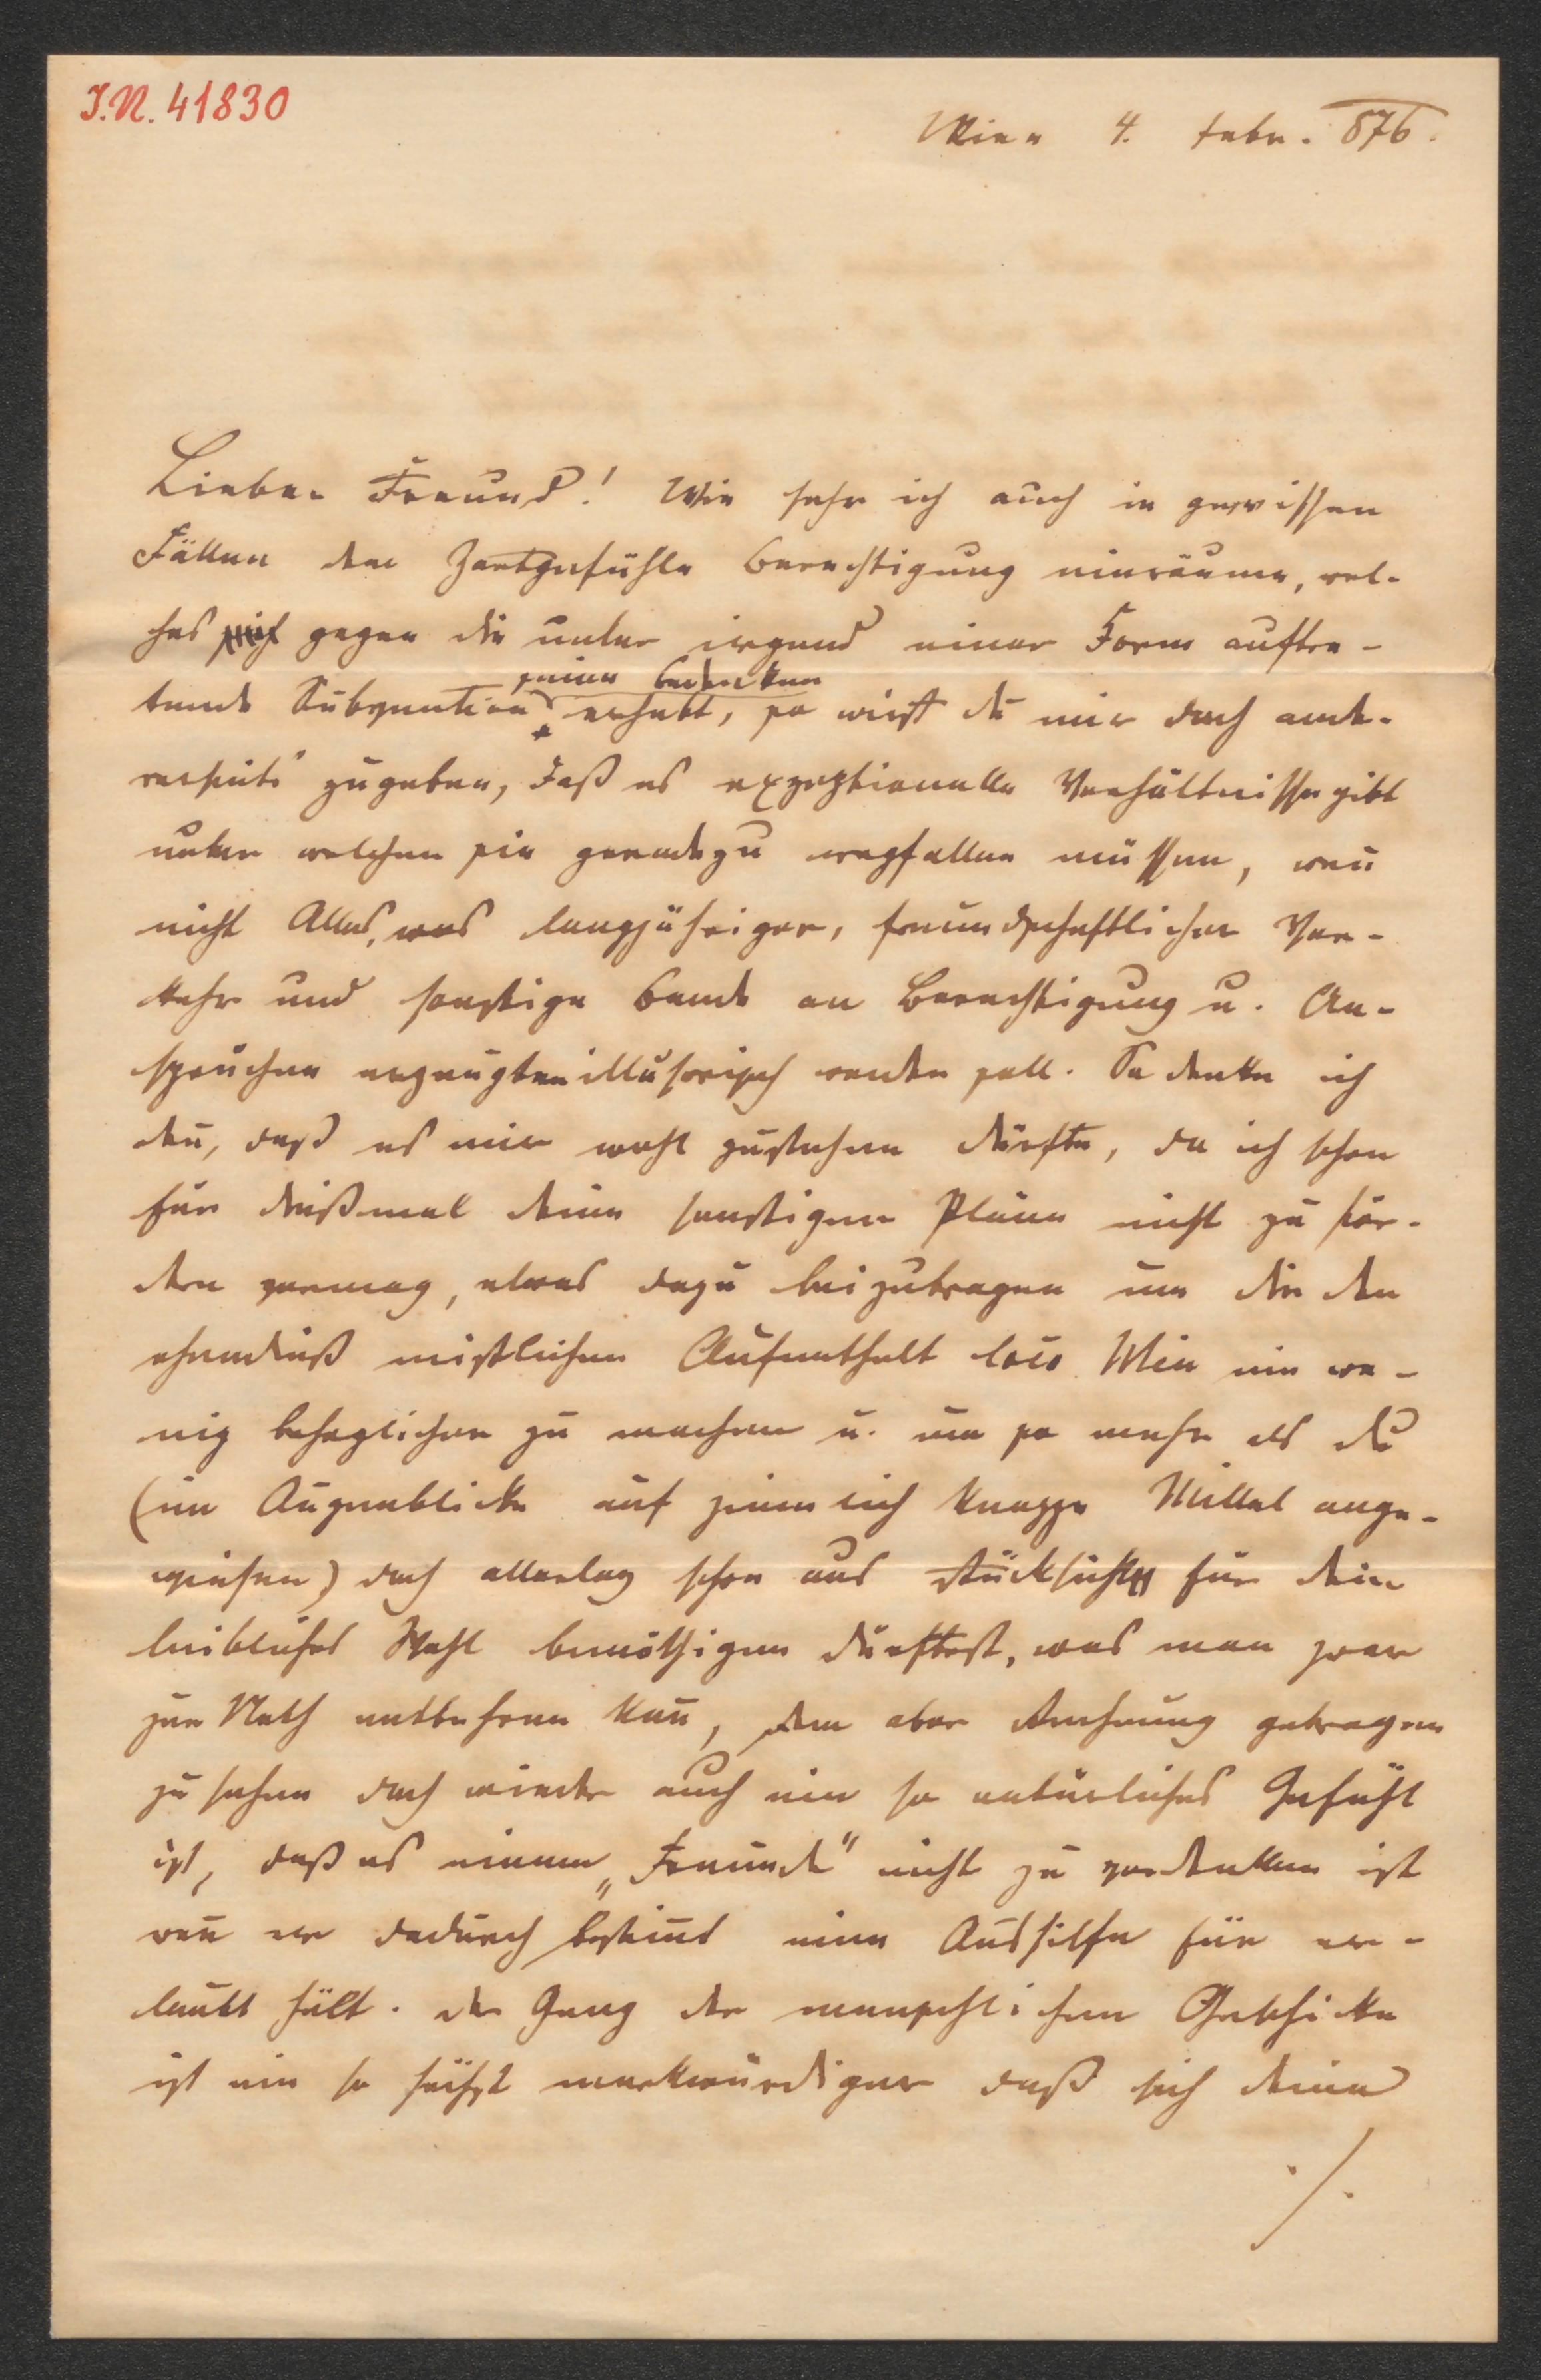 J.N. 41830
Wien 4. Febr. 876.
Lieber Freund! Wie sehr ich auch in gewissen
Fällen dem Zartgefühle Berechtigung einräume, wel-
ches gegen die unter irgend einer Form auftre-
seine Bedenken
tende Subvention erhebt, so wirst du mir doch ande-
rerseits zugeben, daß es exzeptionelle Verhältnisse gibt
unter welchen sie geradezu wegfallen müssen, wen̄
nicht Alles, was langjähriger, freundschaftlicher Ver-
kehr und sonstige Bande an Berechtigung u. An-
sprüchen erzeugten illusorisch werden soll. So denke ich
den̄, daß es mir wohl zustehen dürfte, da ich schon
für dießmal deine sonstigen Pläne nicht zu för-
dern vermag, etwas dazu beizutragen um dir den
ohnedieß mißlichen Aufenthalt loco Wien ein we-
nig behaglicher zu machen u. um so mehr als du
(im Augenblicke auf ziemlich knappe Mittel ange-
wiesen) doch allerlei schon aus Rücksicht für dein
leibliches Wohl benöthigen dürftest, was man zwar
zur Noth entbehren kan̄, dem aber Rechnung getragen
zu sehen doch wieder auch ein so natürliches Gefühl
ist, daß es einem „Freunde" nicht zu verdenken ist
wen̄ er dadurch bestim̄t eine Aushilfe für er-
laubt hält. Der Gang der menschlichen Geschicke
ist ein so höchst merkwürdiger daß sich deine
./.